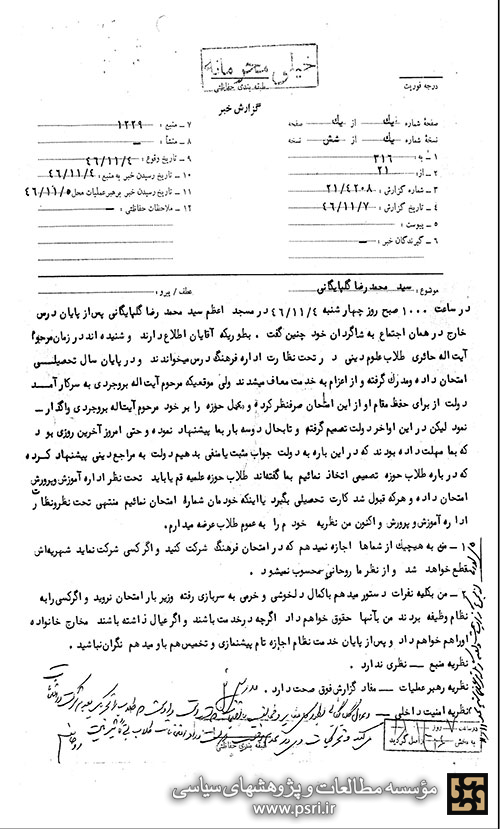 خیلی محرمانه
طبقه بندی حفاظتی
درجه فوریت
گزارش خبر
صفحهٔ شماره یک از یک صفحه
نسخهٔ شماره یک از شش نسخه
۱ ـ به : ۳۱۶
۲ ـ از : ۲۱
۳ ـ شماره گزارش : ۲۱/۴۲۰۸
۴ ـ تاریخ گزارش : ۴۶/۱۱/۷
۵ ـ پیوست :
۶ ـ گیرندگان خبر : ـ
۷ ـ منبع : ۱۲۲۹
۸ ـ منشأ : ـ
۹ ـ تاریخ وقوع : ۴۶/۱۱/۴
۱۰ ـ تاریخ رسیدن خبر به منبع : ۴۶/۱۱/۴
۱۱ ـ تاریخ رسیدن خبر برهبر عملیات محل ۴۶/۱۱/۵
۱۲ ـ ملاحظات حفاظتی : ـ
موضوع : سید محمد رضا گلپایگانی
عطف / پیرو :
در ساعت ۱۰۰۰ صبح روز چهارشنبه ۴۶/۱۱/۴ در مسجد اعظم سید محمد رضا گلپایگانی پس از پایان درس
خارج در همان اجتماع به شاگردان خود چنین گفت . بطوریکه آقایان اطلاع دارند و شنیده اند در زمان مرحوم
آیت اله حائری طلاب علوم دینی در تحت نظارت اداره فرهنگ درس میخواندند و در پایان سال تحصیلی
امتحان داده و مدرک گرفته و از اعزام به خدمت معاف میشدند ولی موقعیکه مرحوم آیت اله بروجردی به سر کار آمد
دولت از برای حفظ مقام او از این امتحان صرفنظر کرد و حوزه را بر خود مرحوم آیت اله بروجردی واگذار ـ
نمود لیکن در این اواخر دولت تصمیم گرفتم و تا بحال دو سه بار بما پیشنهاد نموده و حتی امروز آخرین روزی بود
که بما مهلت داده بودند که در این باره به دولت جواب مثبت یا منفی بدهیم دولت به مراجع دینی پیشنهاد کرده
که در باره طلاب حوزه تصمیمی اتخاذ نمائیم بما گفته اند طلاب حوزه علمیه قم یا باید تحت نظر اداره آموزش و پرورش
امتحان داده و هر که قبول شد کارت تحصیلی بگیرد یا اینکه خودمان شما را امتحان نمائیم منتهی تحت نظر و نظارت
اداره آموزش و پرورش و اکنون من نظریه خودم را به عموم طلاب عرضه میدارم .
۱ ـ من به هیچیک از شماها اجازه نمیدهم که در امتحان فرهنگ شرکت کنید و اگر کسی شرکت نماید شهریه اش
قطع خواهد شد و از نظر ما روحانی محسوب نمیشود .
۲ ـ من بکلیه نفرات دستور میدهم با کمال دلخوشی و خرمی به سربازی رفته و زیر بار امتحان نروید و اگر کسی را به
نظام وظیفه بردند من بآنها حقوق خواهم داد اگر چه در خدمت باشند و اگر عیال داشته باشند مخارج خانواده
او را هم خواهم داد و پس از پایان خدمت نظام اجازه تام پیشنمازی و تخمیس هم باو میدهم نگران نباشید .
نظریه منبع ـ نظری ندارد .
نظریه رهبر عملیات ـ مفاد گزارش فوق صحت دارد .
نظریه امنیت داخلی ـ
طبقه بندی حفاظتی
مؤسسه مطالعات و پژوهشهای سیاسی
www.psri.ir